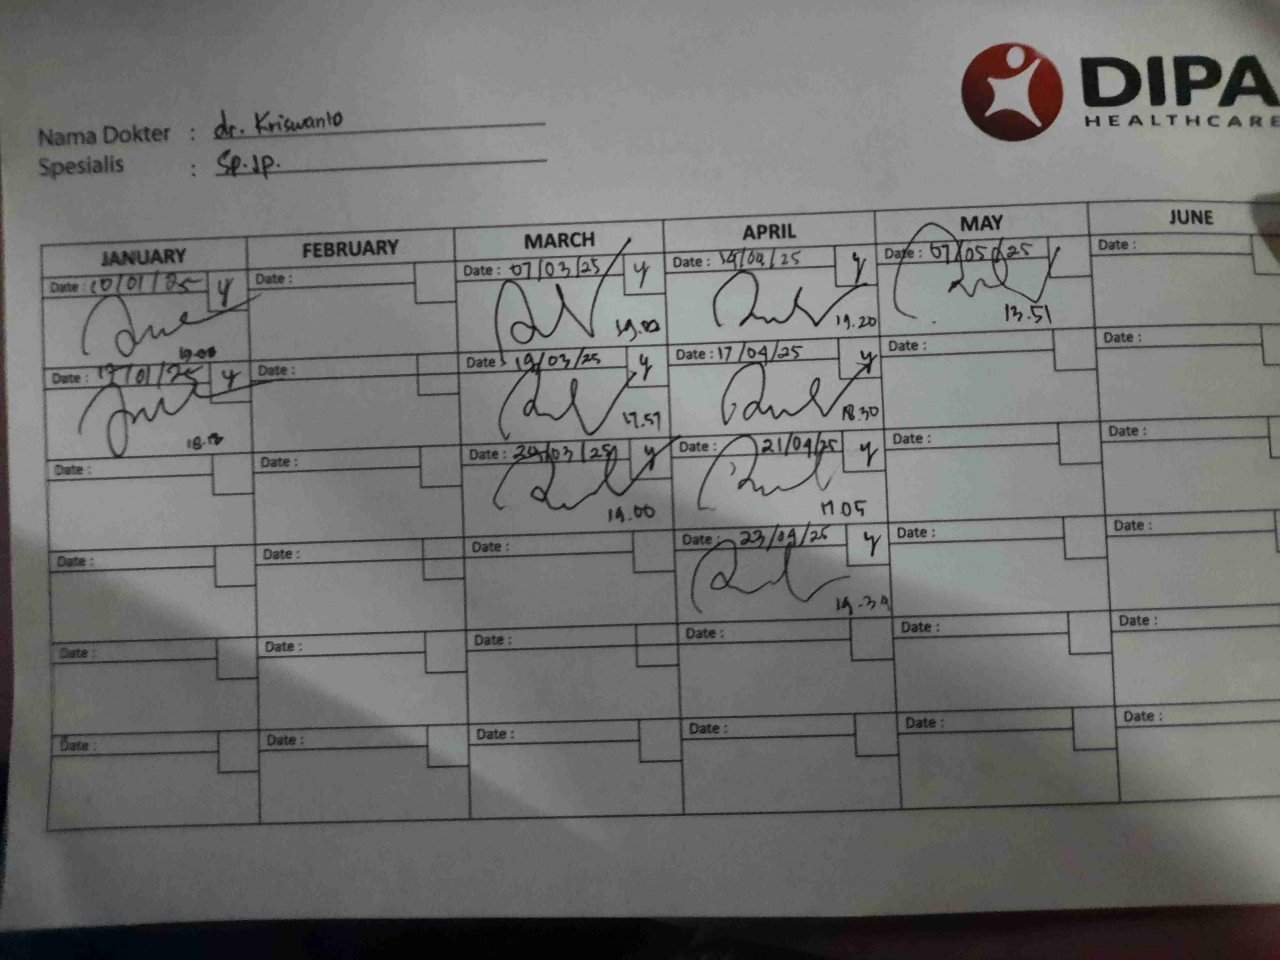 DIPA
HEALTHCARE
Nama Dokter : dr. Kriswanto
Spesialis : Sp.Jp.
JANUARY FEBRUARY MARCH APRIL MAY JUNE
Date : 10/01/25 y Date : Date : 07/03/25 y Date : 14/04/25 y Date : 07/05/25 Date :
19.00 19.00 19.20 13.51
Date : 17/01/25 y Date : Date : 19/03/25 y Date : 17/04/25 y Date : Date :
17.57 18.30
Date : Date : Date : /03/25 y Date : 21/04/25 y Date : Date :
19.00 17.05
Date : Date : Date : Date : 23/04/25 y Date : Date :
Date : Date : Date : Date : Date : Date :
Date : Date : Date : Date : Date : Date :